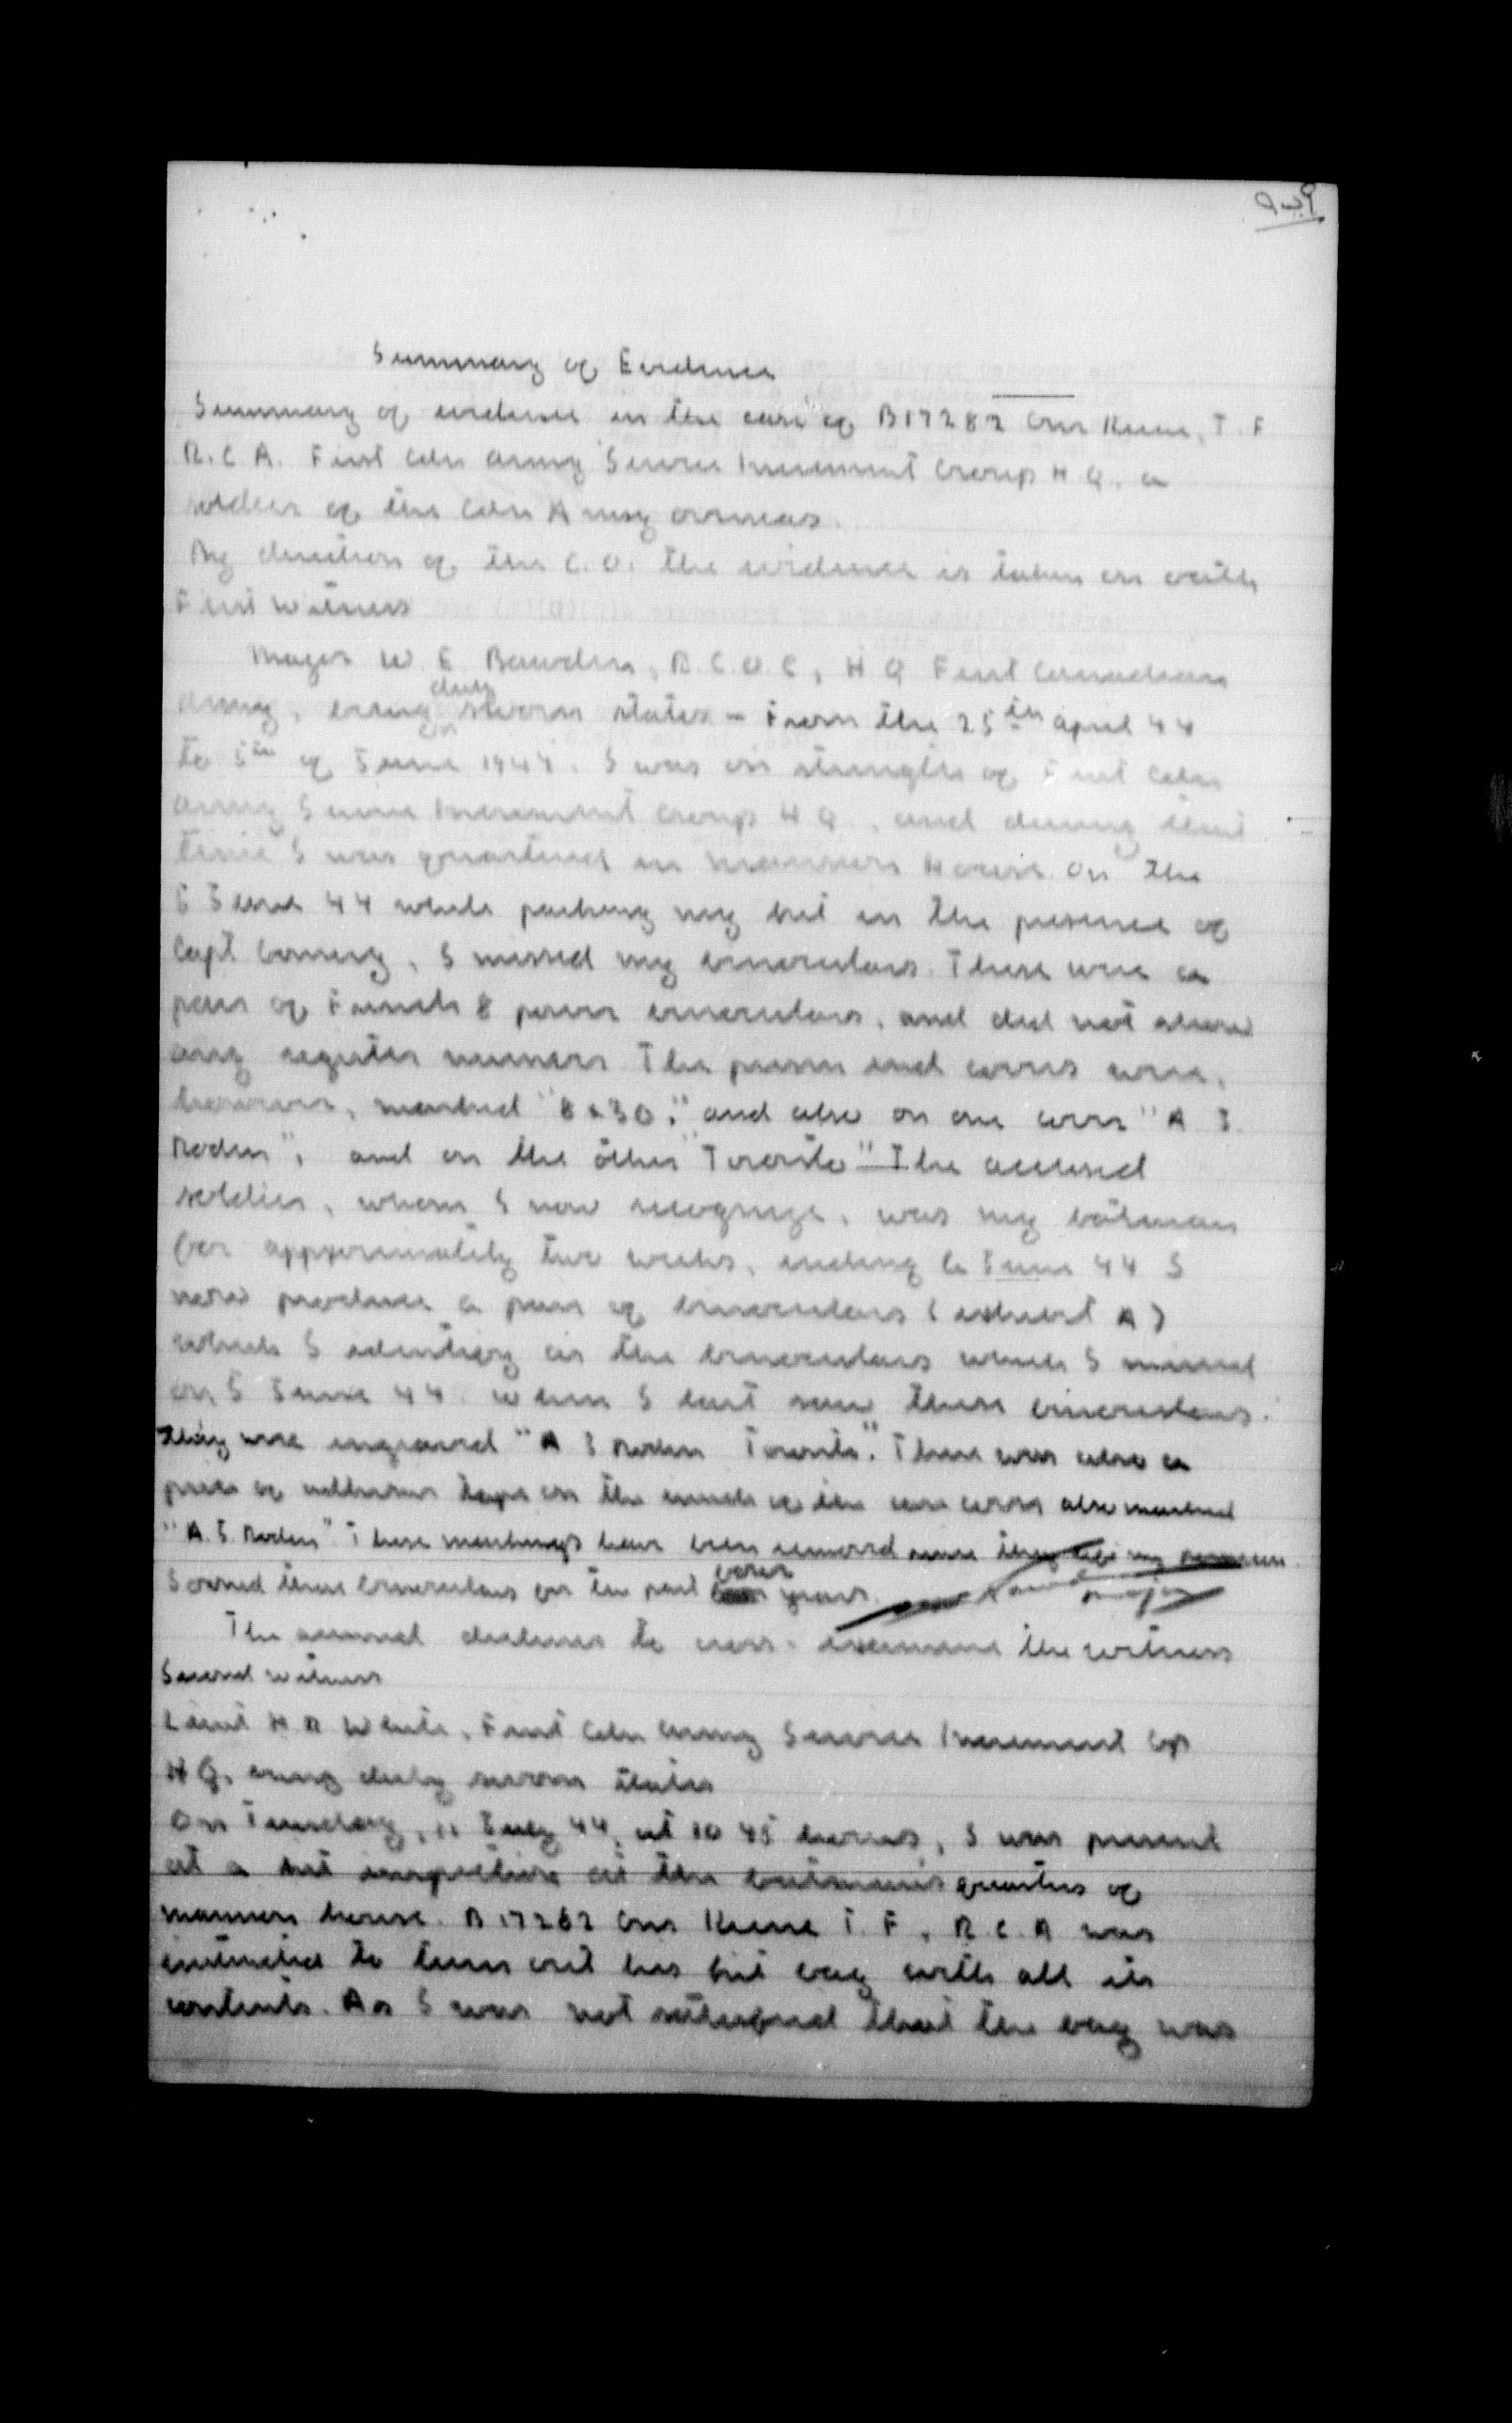 Summary of Evidence
Summary of evidence in the case of B17282 Gnr Keene, T. F
R.C.A. First Cdn Army Service Increment Group H Q. a
soldier of the Cdn Army overseas.
By direction of the C.O. the evidence is taken on oath
First Witness
Major W E Bawden, R.C.O.C, H Q First Canadian
Army, being duly sworn states - From the 25th April 44
to 5th of June 1944. I was on strength of First Cdn
Army Service Increment Group H Q, and during that
time I was quartered in Manners House. On the
5 June 44 while packing my kit in the presence of
Capt, I missed my binoculars. These were a
pair of French 8 power binoculars, and did not show
any register numbers The prism end covers were,
however, marked "8 x 30", and also on one cover "A J
Roden", and on the other "Toronto" The accused
soldier, whom I now recognize, was my batman
for approximately two weeks, ending 6 June 44 I
now produce a pair of binoculars (exhibit A)
which I identify as the binoculars which I missed
on 5 June 44. When I last saw these binoculars.
they were engraved "A J Roden Toronto". There was also a
piece of adhesive tape on the inside of the case cover also marked
"A. J. Roden" These markings have been removed since they left my
I owned these binoculars for the past years. Major
The accused declines to cross-examine the witness
Second witness
Lieut H R White, First Cdn Army Service Increment Gp
H Q, being duly sworn states
On Tuesday, 11 July 44, at 10 45 hours, I was present
at a kit inspection at the batman's quarters of
Manners house. B 17282 Gnr Keene T. F, R.C.A was
instructed to turn out his kit bag with all its
contents. As I was not satisfied that the bag was